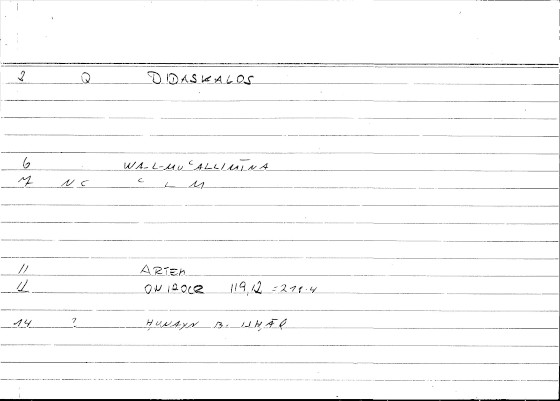 2 Q DIDASKALOS
6 WA-L-MUʿALLIMĪNA
7 NC ʿ L M
11 ARTEM
12 ONIROCR 119,12 = 211.4
14 ? ḤUNAYN B. ISḤĀQ